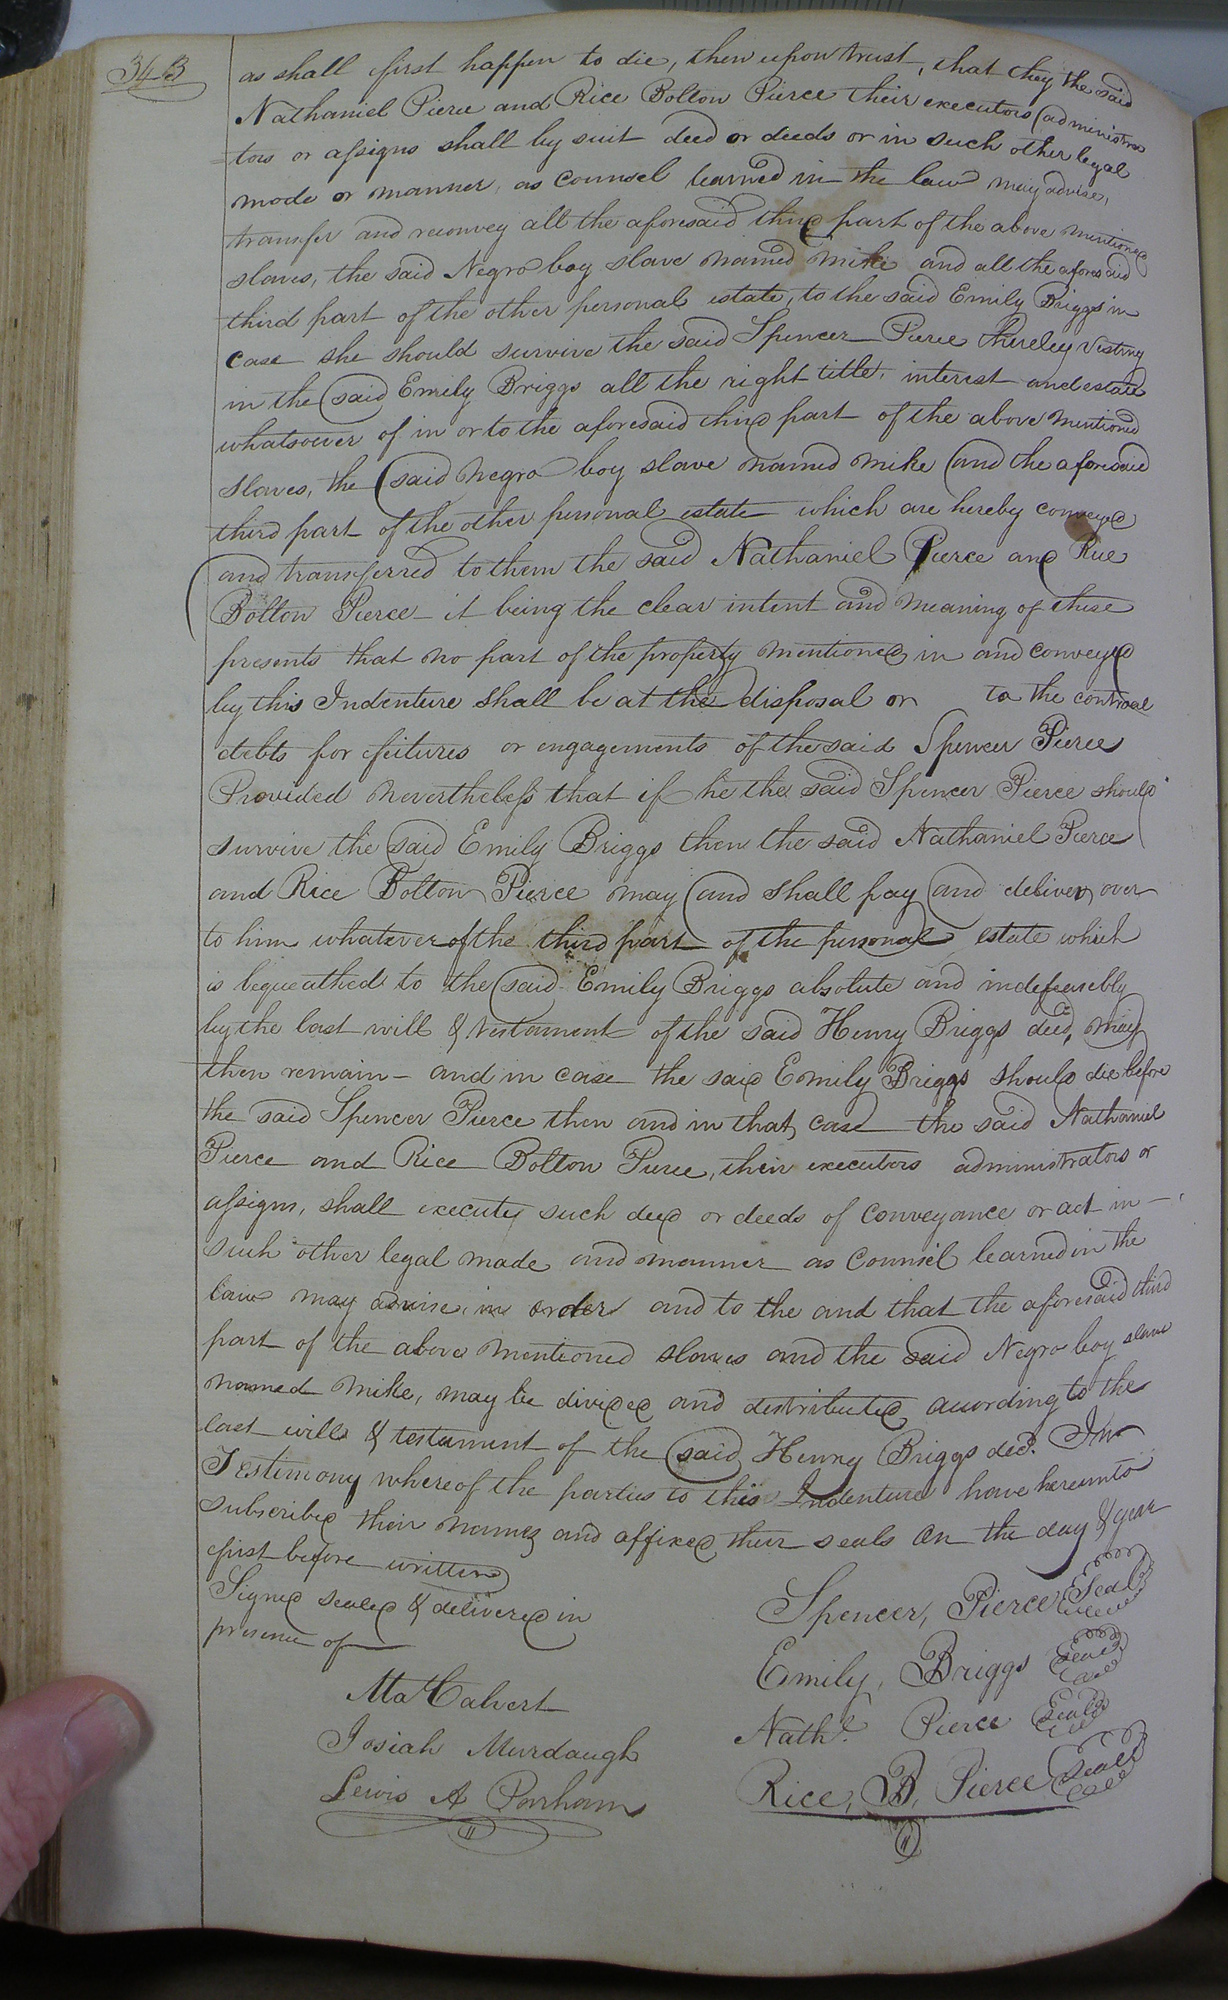 343
as shall first happen to die, then upon trust, that they the said
Nathaniel Pierce and Rice Bolton Pierce their executors administra
=tors or assigns shall by suit deed or deeds or in such other legal
mode or manner, as counsel learned in the law may advise,
transfer and reconvey all the aforesaid third part of the above mentioned
slaves, the said Negro boy slave named Mike and all the aforesaid
third part of the other personal estate, to the said Emily Briggs in
case she should survive the said Spencer Pierce thereby vesting
in the said Emily Briggs all the right title, interest and estate
whatsoever of in or to the aforesaid third part of the above mentioned
slaves, the said Negro boy slave named Mike and the aforesaid
third part of the other personal estate which are hereby conveyed
and transferred to them the said Nathaniel Pierce and Rice
Bolton Pierce - it being the clear intent and meaning of these
presents that no part of the property mentioned in and conveyed
by this Indenture shall be at the disposal or to the controal
debts forfeitures or engagements of the said Spencer Pierce
Provided nevertheless that if he the said Spencer Pierce should
survive the said Emily Briggs then the said Nathaniel Pierce
and Rice Bolton Pierce may and shall pay and deliver over
to him whatever of the third part of the personal estate which
is bequeathed to the said Emily Briggs absolute and indefeasebly
by the last will & testament of the said Henry Briggs decd, may
then remain - and in case the said Emily Briggs should die before
the said Spencer Pierce then and in that case the said Nathaniel
Pierce and Rice Bolton Pierce, their executors administrators or
assigns, shall execute such deed or deeds of conveyance or act in -
such other legal made and manner as Counsel learned in the
law may advise, in order and to the and that the aforesaid third
part of the above mentioned slaves and the said Negro boy slave
named Mike, may be divided and distributed according to the
last will & testament of the said Henry Briggs decd. In
Testimony whereof the parties to this Indenture have hereunto
subscribed their names and affixed their seals on the day & year
first before written
Signed sealed & delivered in
presence of
Spencer, Pierce Seal
Emily, Briggs Seal
Nathl. Pierce Seal
Rice, B, Pierce Seal
Calvert
Josiah Murdaugh
Lewis A Parham